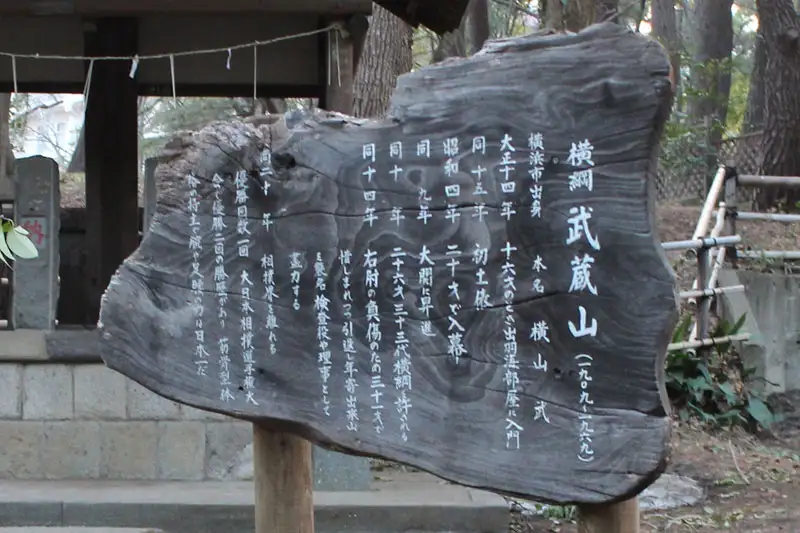 横綱 武蔵山 (一九〇九~一九六九)
横浜市出身 本名 横山 武
大正十四年 十六才のとき出羽海部屋に入門
同十五年 初土俵
昭和四年 二十才で入幕
同 九年 大関に昇進
同十 年 二十六才三十三代横綱に
同十四年 右肘の負傷のため三十一才で
惜しまれつつ引退し年寄出来山
を襲名 検査役や理事として
尽力する
同二十 年 相撲界を離れる
優勝回数一回 大日本相撲選手権大
会で優勝二回の勝歴があり 筋骨型